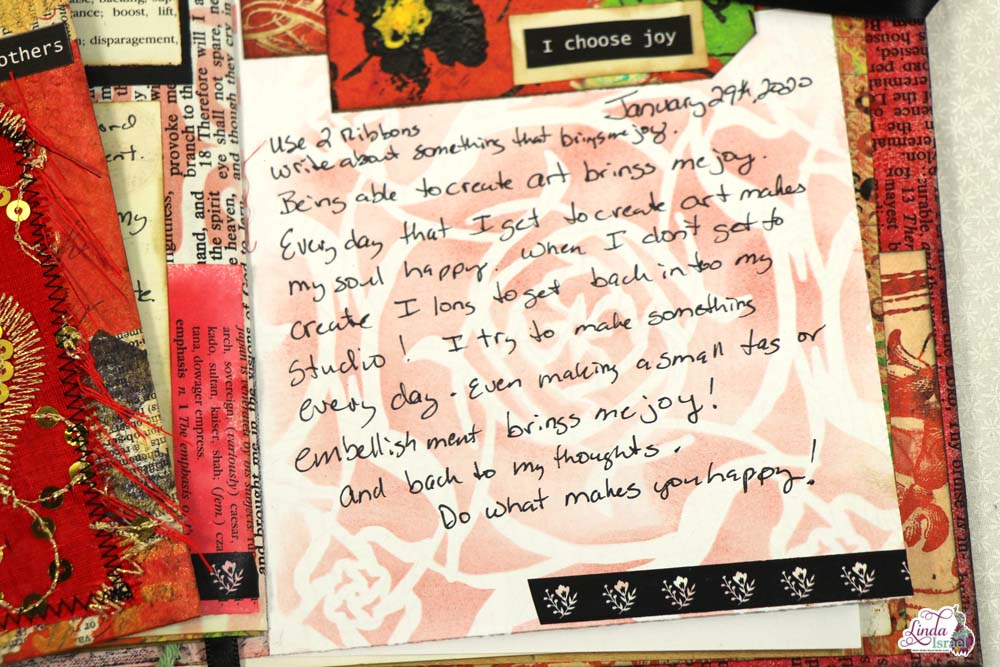 I choose joy
January 29th, 2020
Use 2 Ribbons
Write about something that brings me joy.
Being able to create art brings me joy.
Every day that I get to create art makes
my soul happy. When I don't get to
create I long to get back in too my
studio! I try to make something
every day. Even making a small tag or
embellishment brings me joy!
and back to my thoughts.
Do what makes you happy!
others
ance; boost, lift,
n; disparagement,
ord
ent.
my
provoke me
branch to th
18 Therefore will I a
eye shall not spare, ne
and though they cry in
land, and
the spirit
e heaven,
arch, sovereign, (variously) caesar,
kado, sultan, kaiser, shah; (fem.) cza
tana, dowager empress.
emphasis n. 1 The emphasis
Linda
Israel